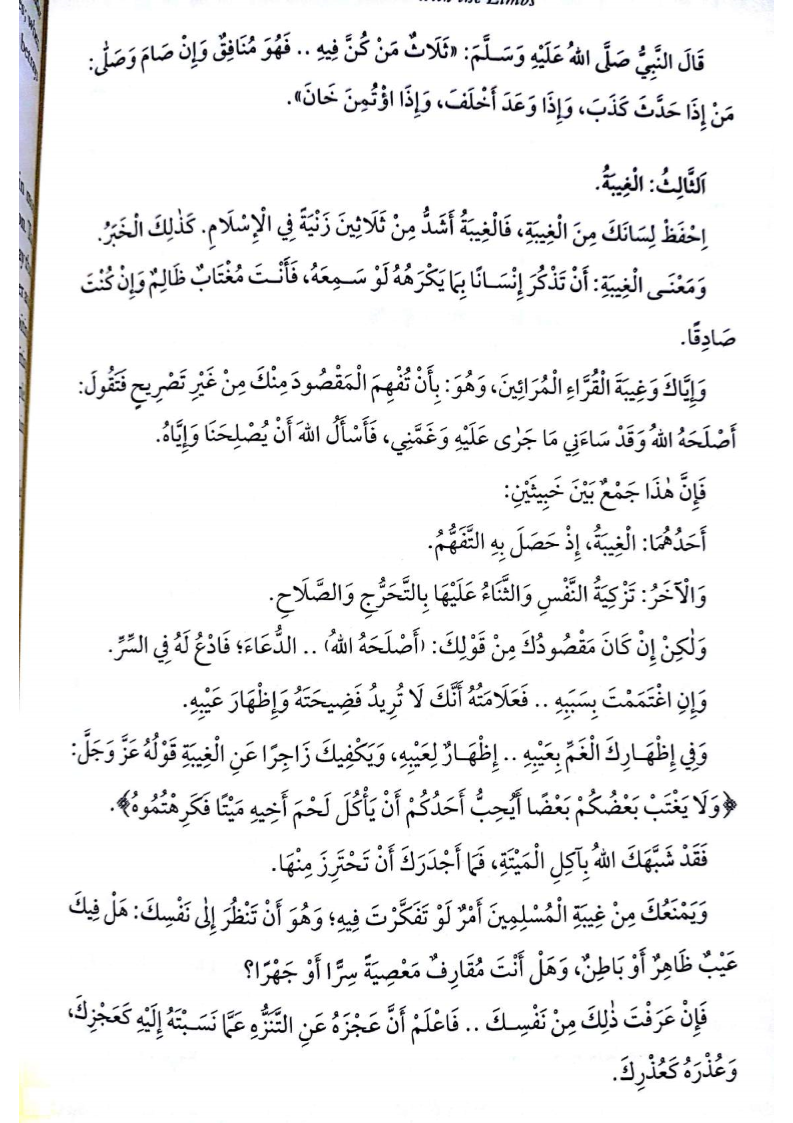 قَالَ النَّبِيُّ صَلَّى اللهُ عَلَيْهِ وَسَلَّمَ: «ثَلَاثٌ مَنْ كُنَّ فِيهِ .. فَهُوَ مُنَافِقٌ وَإِنْ صَامَ وَصَلَّى:
مَنْ إِذَا حَدَّثَ كَذَبَ، وَإِذَا وَعَدَ أَخْلَفَ، وَإِذَا اؤْتُمِنَ خَانَ».
اَلثَّالِثُ: الْغِيبَةُ.
اِحْفَظْ لِسَانَكَ مِنَ الْغِيبَةِ، فَالْغِيبَةُ أَشَدُّ مِنْ ثَلَاثِينَ زَنْيَةً فِي الْإِسْلَامِ. كَذٰلِكَ الْخَبَرُ.
وَمَعْنَى الْغِيبَةِ: أَنْ تَذْكُرَ إِنْسَانًا بِمَا يَكْرَهُهُ لَوْ سَمِعَهُ، فَأَنْتَ مُغْتَابٌ ظَالِمٌ وَإِنْ كُنْتَ
صَادِقًا.
وَإِيَّاكَ وَغِيبَةَ الْقُرَّاءِ الْمُرَائِينَ، وَهُوَ: بِأَنْ تُفْهِمَ الْمَقْصُودَ مِنْكَ مِنْ غَيْرِ تَصْرِيحٍ فَتَقُولَ:
أَصْلَحَهُ اللهُ وَقَدْ سَاءَنِي مَا جَرٰى عَلَيْهِ وَغَمَّنِي، فَأَسْأَلُ اللهَ أَنْ يُصْلِحَنَا وَإِيَّاهُ.
فَإِنَّ هٰذَا جَمْعٌ بَيْنَ خَبِيثَيْنِ:
أَحَدُهُمَا: الْغِيبَةُ، إِذْ حَصَلَ بِهِ التَّفَهُّمُ.
وَالْآخَرُ: تَزْكِيَةُ النَّفْسِ وَالثَّنَاءُ عَلَيْهَا بِالتَّحَرُّجِ وَالصَّلَاحِ.
وَلٰكِنْ إِنْ كَانَ مَقْصُودُكَ مِنْ قَوْلِكَ: (أَصْلَحَهُ اللهُ) .. الدُّعَاءَ؛ فَادْعُ لَهُ فِي السِّرِّ.
وَإِنِ اغْتَمَمْتَ بِسَبَبِهِ .. فَعَلَامَتُهُ أَنَّكَ لَا تُرِيدُ فَضِيحَتَهُ وَإِظْهَارَ عَيْبِهِ.
وَفِي إِظْهَارِكَ الْغَمِّ بِعَيْبِهِ .. إِظْهَارٌ لِعَيْبِهِ، وَيَكْفِيكَ زَاجِرًا عَنِ الْغِيبَةِ قَوْلُهُ عَزَّ وَجَلَّ:
﴿وَلَا يَغْتَبْ بَعْضُكُمْ بَعْضًا أَيُحِبُّ أَحَدُكُمْ أَنْ يَأْكُلَ لَحْمَ أَخِيهِ مَيْتًا فَكَرِهْتُمُوهُ﴾.
فَقَدْ شَبَّهَكَ اللهُ بِآكِلِ الْمَيْتَةِ، فَمَا أَجْدَرَكَ أَنْ تَحْتَرِزَ مِنْهَا.
وَيَمْنَعُكَ مِنْ غِيبَةِ الْمُسْلِمِينَ أَمْرٌ لَوْ تَفَكَّرْتَ فِيهِ؛ وَهُوَ أَنْ تَنْظُرَ إِلٰى نَفْسِكَ: هَلْ فِيكَ
عَيْبٌ ظَاهِرٌ أَوْ بَاطِنٌ، وَهَلْ أَنْتَ مُقَارِفٌ مَعْصِيَةً سِرًّا أَوْ جَهْرًا؟
فَإِنْ عَرَفْتَ ذٰلِكَ مِنْ نَفْسِكَ .. فَاعْلَمْ أَنَّ عَجْزَهُ عَنِ التَّنَزُّهِ عَمَّا نَسَبْتَهُ إِلَيْهِ كَعَجْزِكَ،
وَعُذْرَهُ كَعُذْرِكَ.